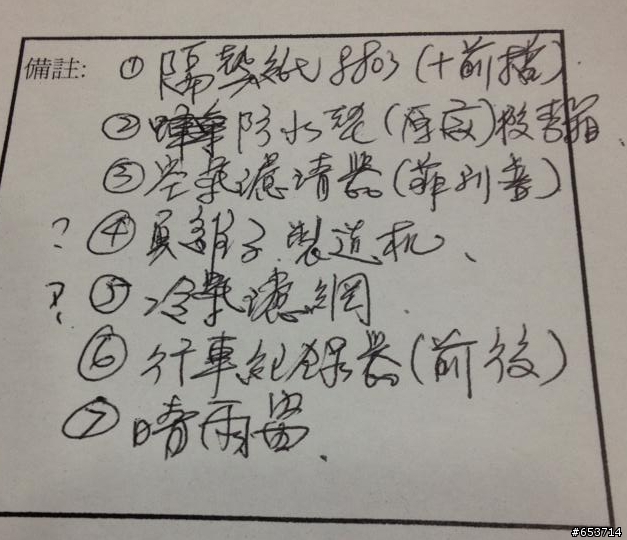 備註: ① 隔熱紙 8803 (+前檔)
② 防水 (原廠) 後
③ 空氣濾清器 (菲利)
? ④ 負離子製造机、
? ⑤ 冷氣濾網
⑥ 行車紀錄器 (前後)
⑦ 晴雨窗
#653714